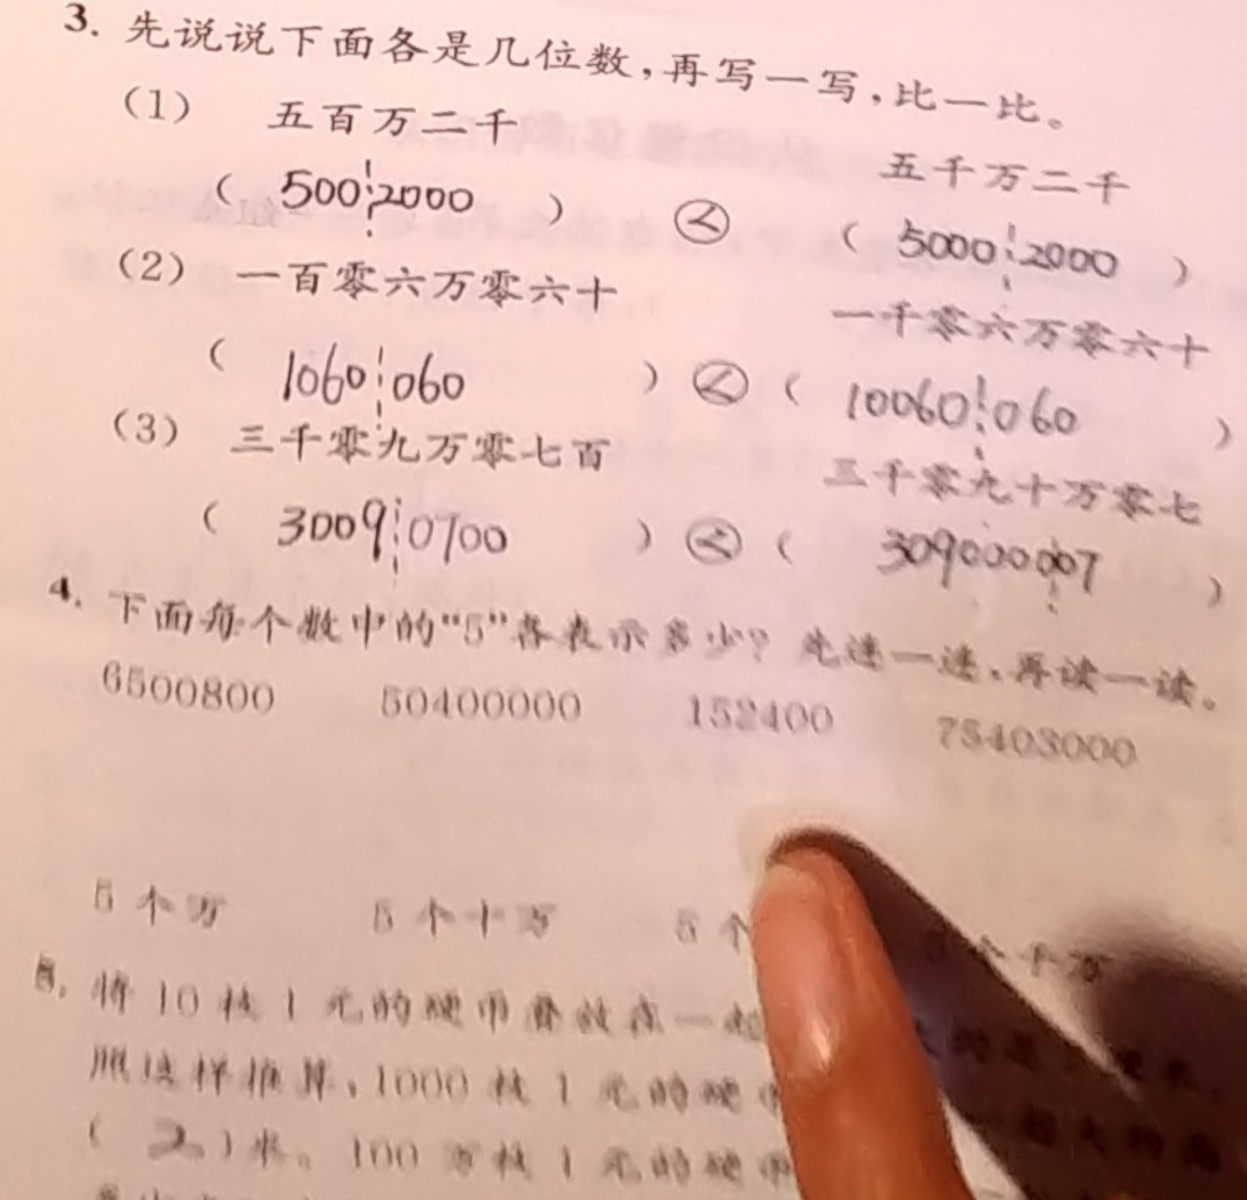 3. 先说说下面各是几位数，再写一写，比一比。
（1） 五百万二千 五千万二千
（ 500¦2000 ） < （ 5000¦2000 ）
（2） 一百零六万零六十 一千零六万零六十
（ 1060¦060 ） < （ 10060¦060 ）
（3） 三千零九万零七百 三千零九十万零七
（ 3009¦0700 ） < （ 309000007 ）
4. 下面每个数中的“5”各表示多少？先连一连，再读一读。
6500800 50400000 152400 75403000
5个万 5个十万 5个 个千万
5. 将10枚1元的硬币叠放在一起
照这样推算，1000枚1元的硬
（ 2 ）米。100万枚1元的硬